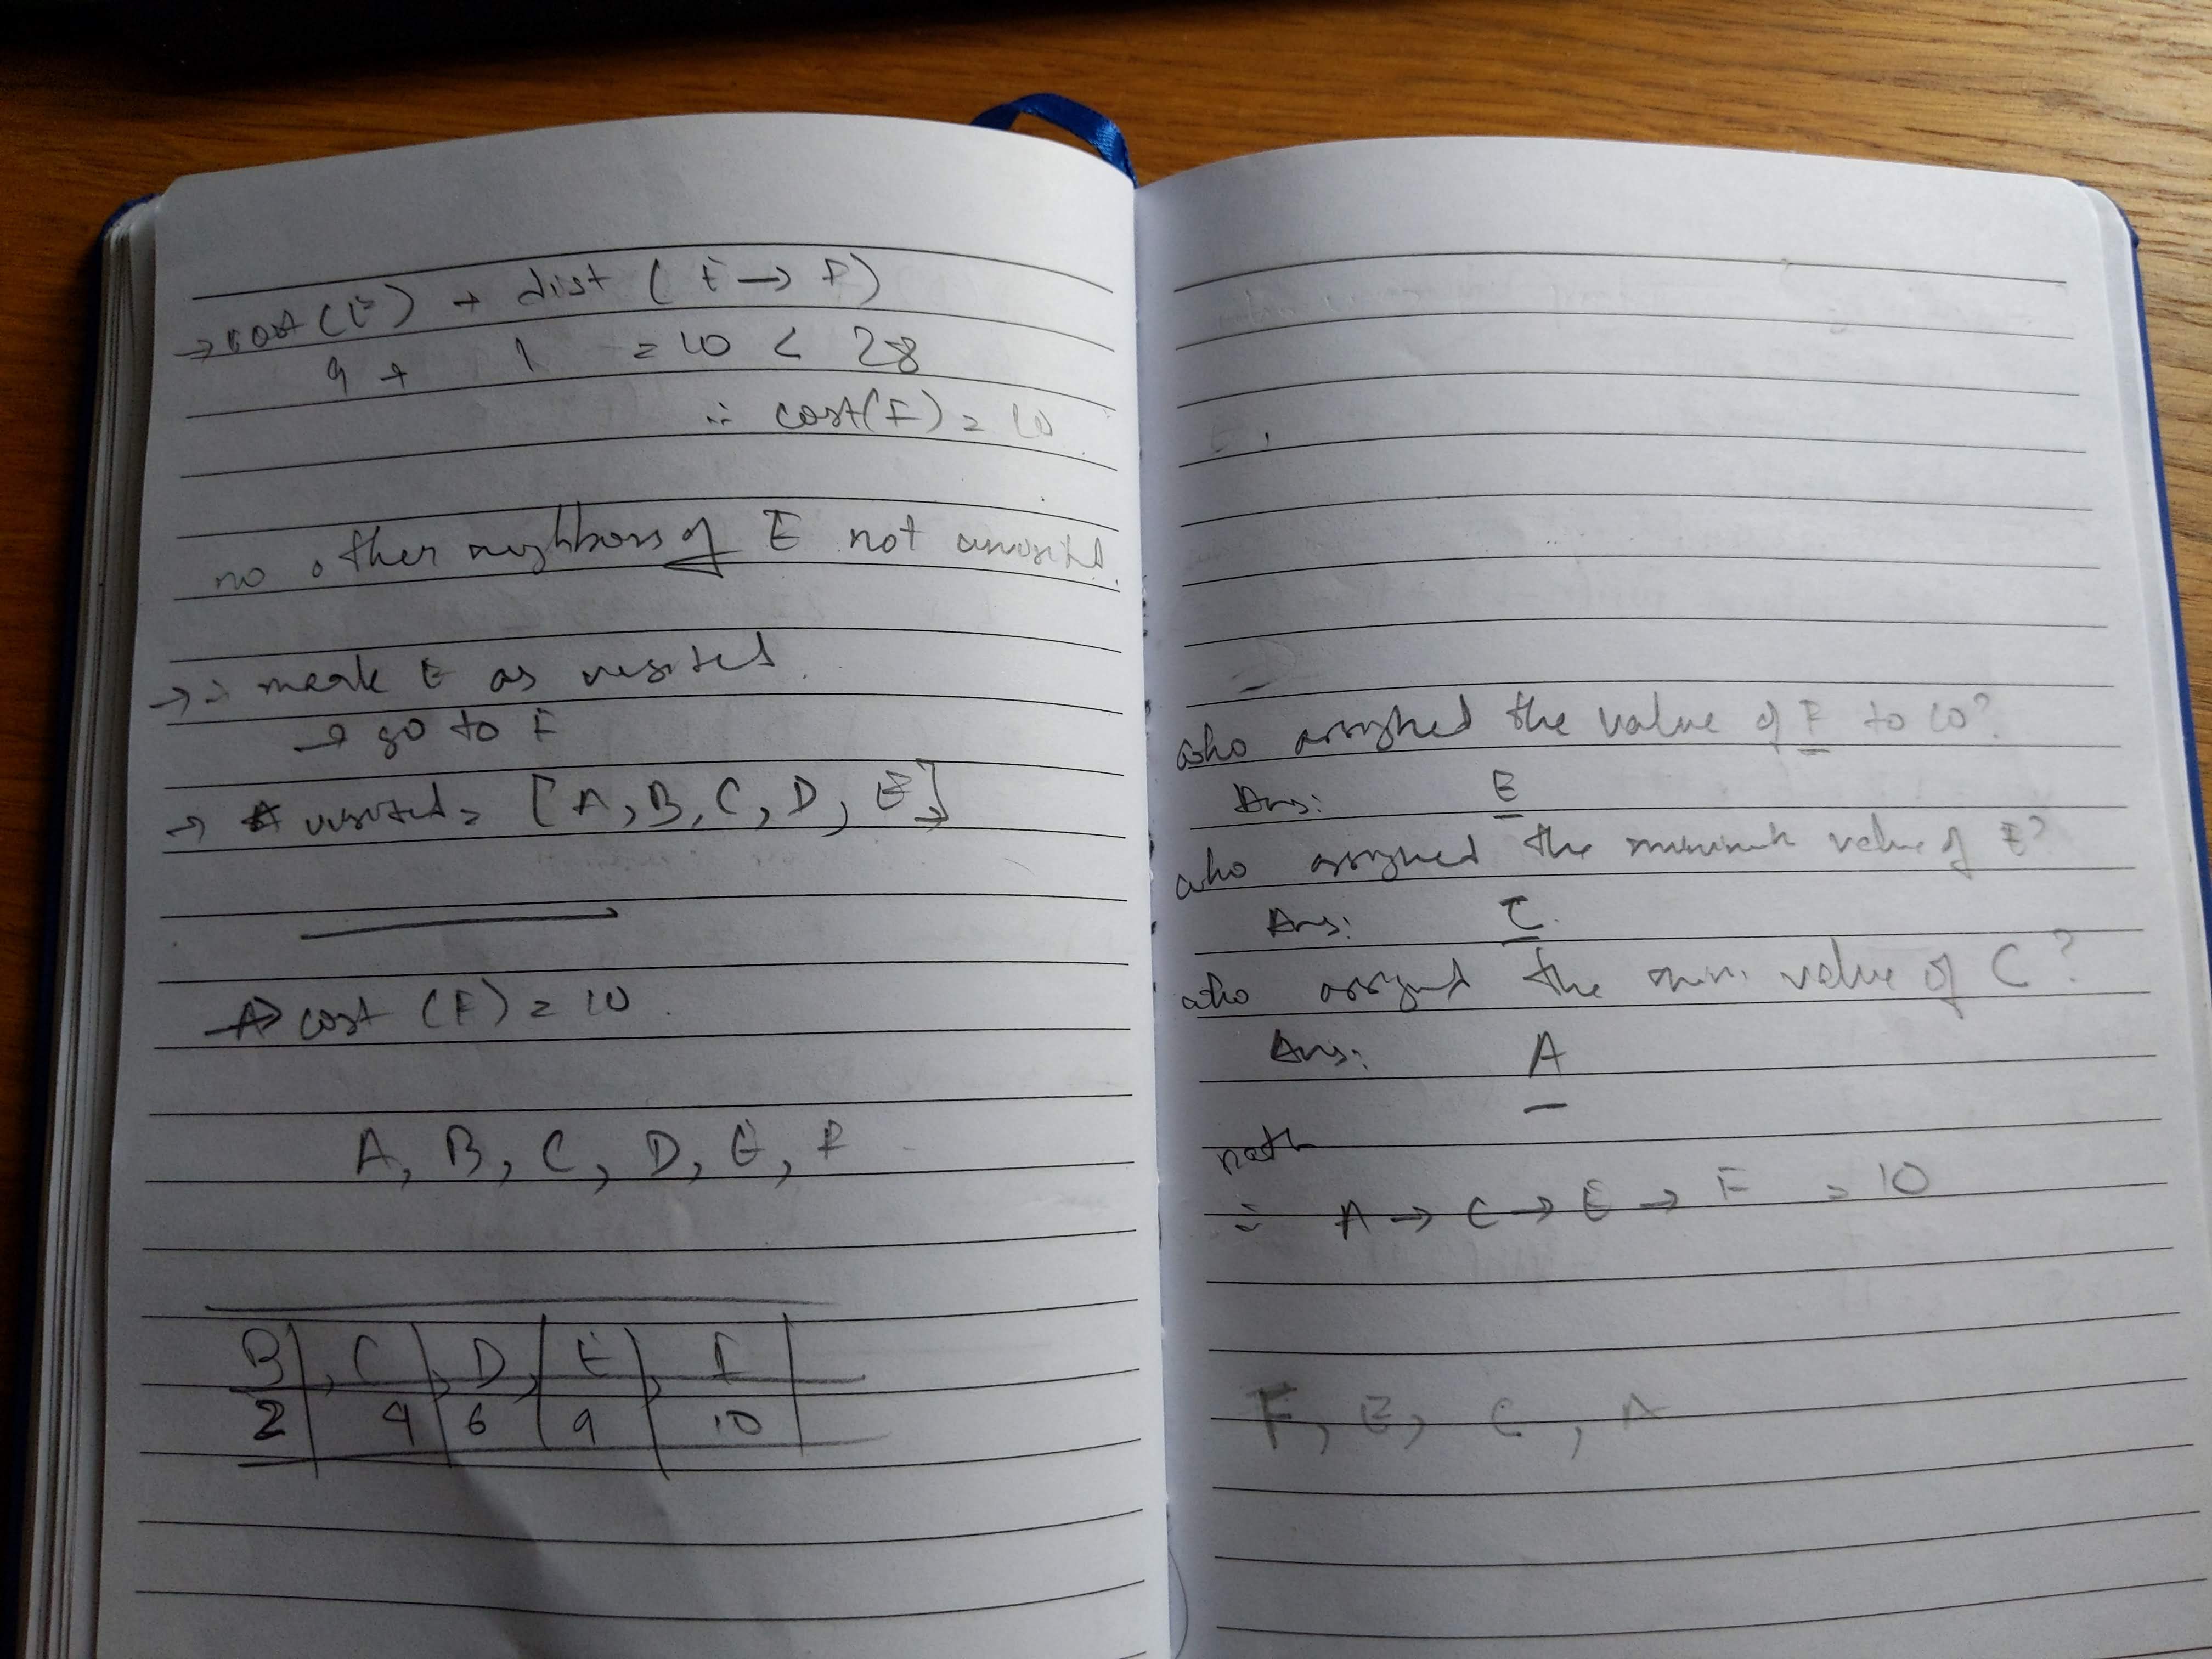 → cost (E) + dist ( E → F )
9 + 1 = 10 < 28
∴ cost(F) = 10
no other neighbors of E not unvisited.
→ ∴ mark E as visited.
→ go to F
→ visited = [ A, B, C, D, E ]
→ cost (F) = 10
A, B, C, D, E, F
B , C , D , E , F
2 4 6 9 10
who assigned the value of F to 10?
Ans: E
who assigned the value of E?
Ans: C
who assigned the min. value of C?
Ans: A
path
∴ A → C → E → F = 10
F, E, C, A